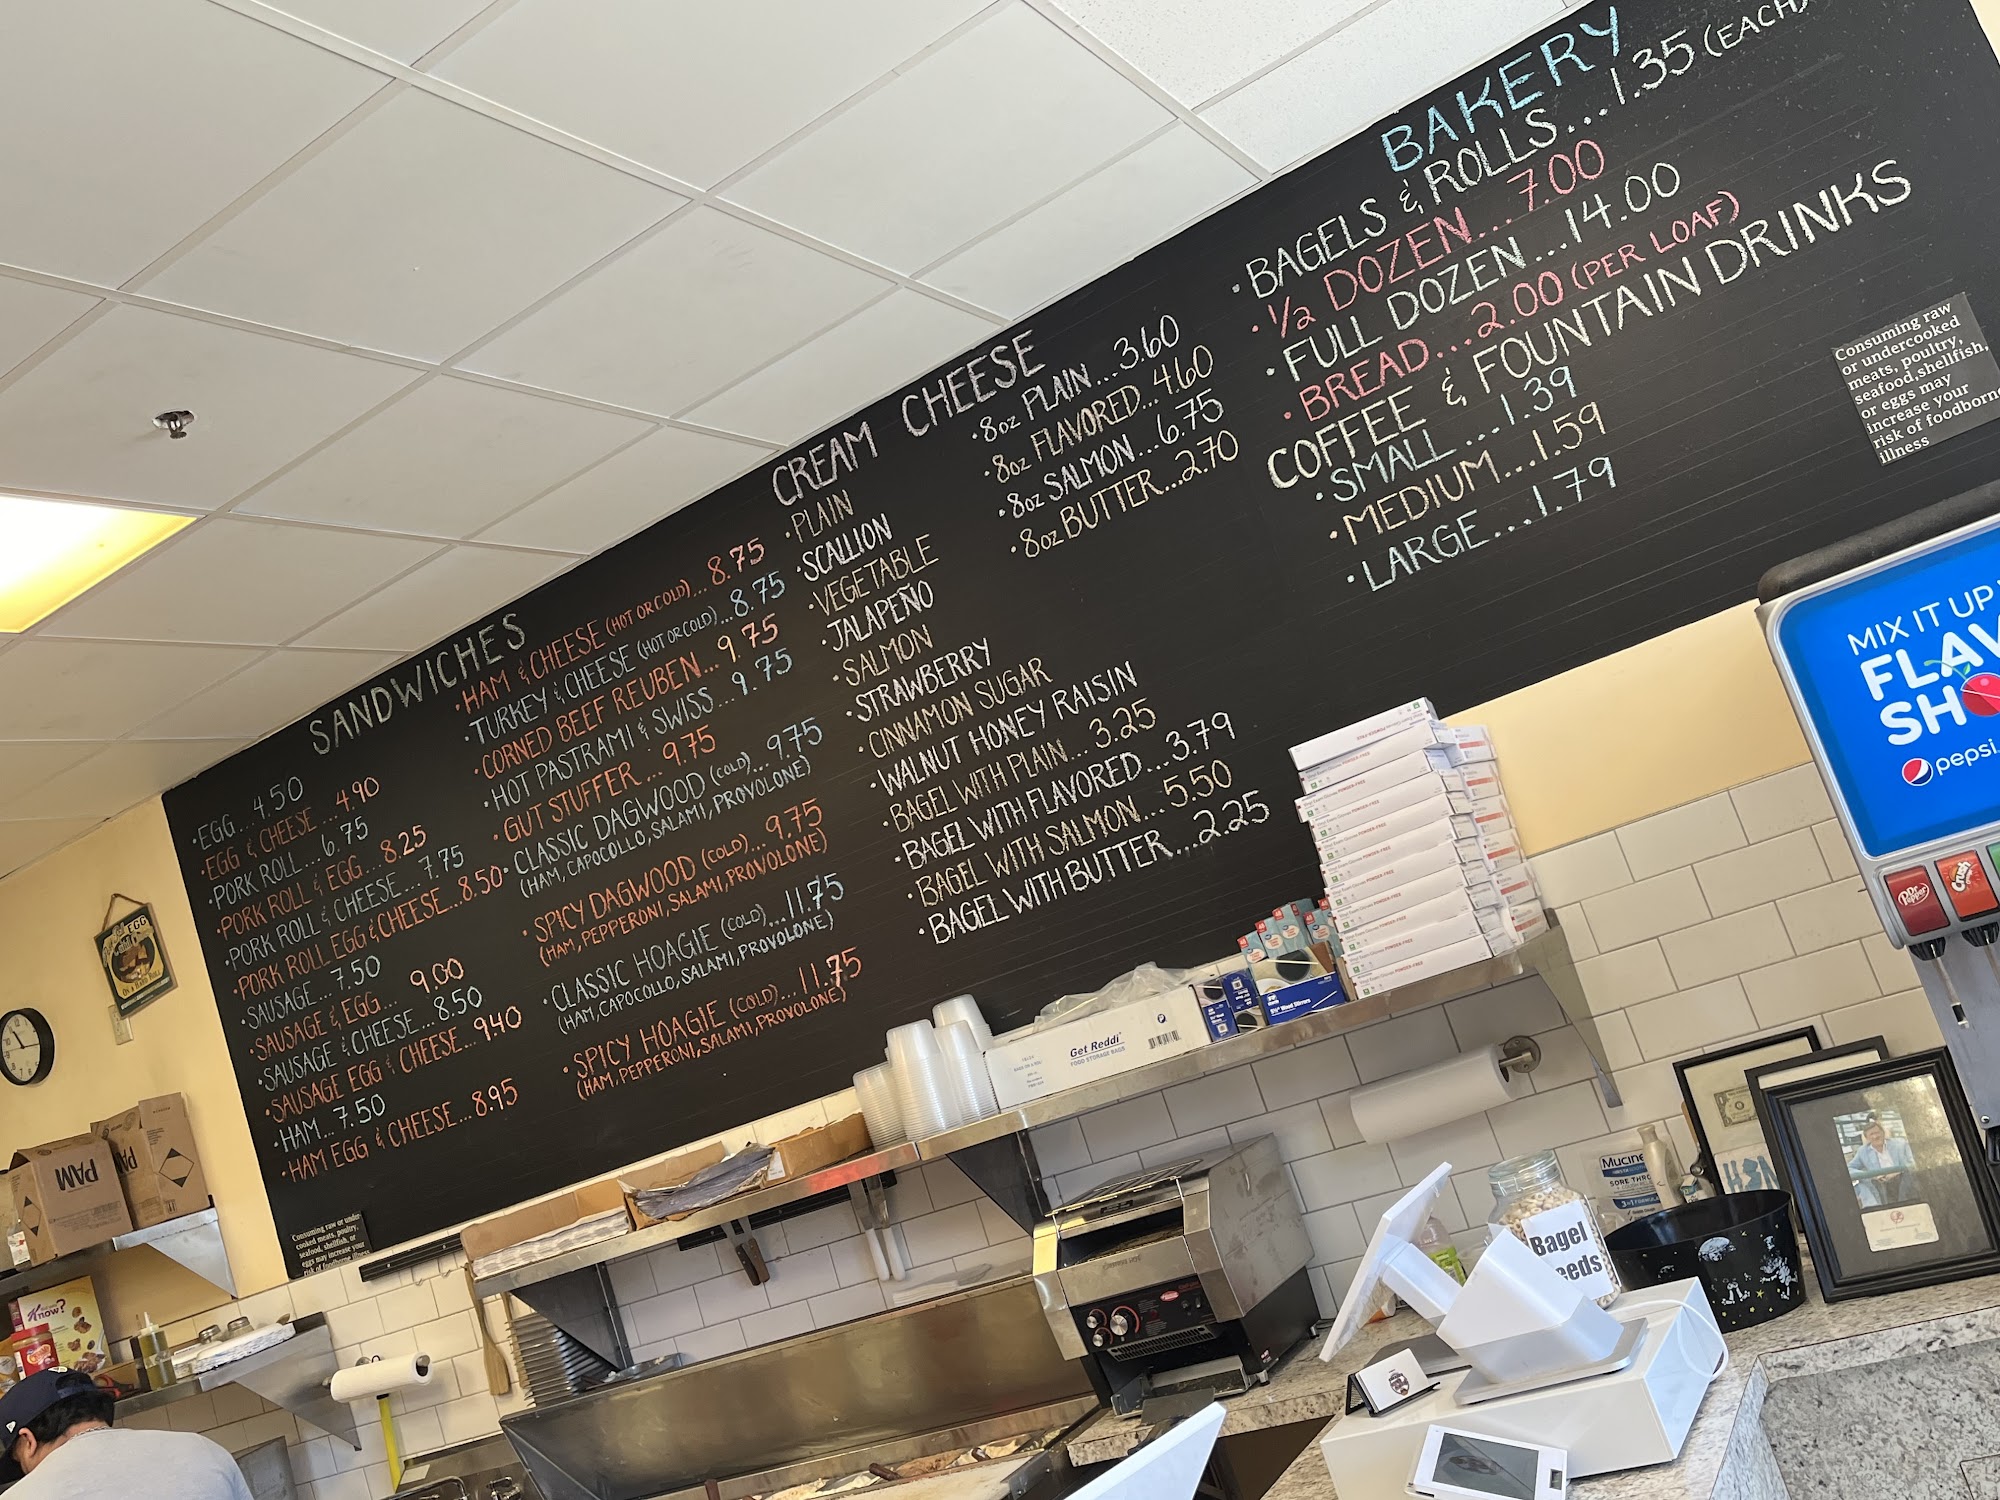 SANDWICHES
• EGG...4.50
• EGG & CHEESE...4.90
• PORK ROLL...6.75
• PORK ROLL & EGG...8.25
• PORK ROLL & CHEESE...7.75
• PORK ROLL EGG & CHEESE...8.50
• SAUSAGE...7.50
• SAUSAGE & EGG...9.00
• SAUSAGE & CHEESE...8.50
• SAUSAGE EGG & CHEESE...9.40
• HAM...7.50
• HAM EGG & CHEESE...8.95
• HAM & CHEESE (HOT OR COLD)...8.75
• TURKEY & CHEESE (HOT OR COLD)...8.75
• CORNED BEEF REUBEN...9.75
• HOT PASTRAMI & SWISS...9.75
• GUT STUFFER...9.75
• CLASSIC DAGWOOD (COLD)...9.75
(HAM, CAPOCOLLO, SALAMI, PROVOLONE)
• SPICY DAGWOOD (COLD)...9.75
(HAM, PEPPERONI, SALAMI, PROVOLONE)
• CLASSIC HOAGIE (COLD)...11.75
(HAM, CAPOCOLLO, SALAMI, PROVOLONE)
• SPICY HOAGIE (COLD)...11.75
(HAM, PEPPERONI, SALAMI, PROVOLONE)
CREAM CHEESE
• PLAIN
• SCALLION
• VEGETABLE
• JALAPEÑO
• SALMON
• STRAWBERRY
• CINNAMON SUGAR
• WALNUT HONEY RAISIN
• BAGEL WITH PLAIN...3.25
• BAGEL WITH FLAVORED...3.79
• BAGEL WITH SALMON...5.50
• BAGEL WITH BUTTER...2.25
• 8oz PLAIN...3.60
• 8oz FLAVORED...4.60
• 8oz SALMON...6.75
• 8oz BUTTER...2.70
BAKERY
• BAGELS & ROLLS...1.35 (EACH)
• 1/2 DOZEN...7.00
• FULL DOZEN...14.00
• BREAD...2.00 (PER LOAF)
COFFEE & FOUNTAIN DRINKS
• SMALL...1.39
• MEDIUM...1.59
• LARGE...1.79
Consuming raw
or undercooked
meats, poultry,
seafood,shellfish,
or eggs may
increase your
risk of foodborne
illness
Consuming raw or under
cooked meats, poultry,
seafood, shellfish, or
eggs may increase your
risk of foodborne illness
MIX IT UP
FLAV
SH
pepsi
Dr Pepper
Crush
EGG
PAM
Know?
Get Reddi
FOOD STORAGE BAGS
POWDER-FREE
Mucine
SORE THRO
Bagel
eeds